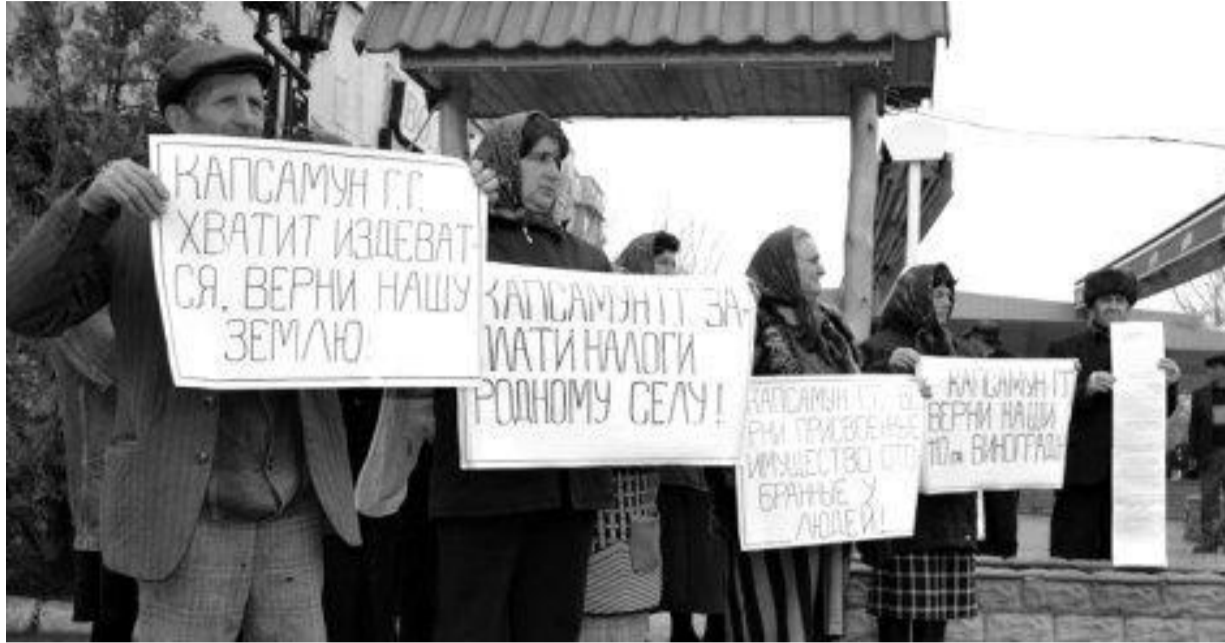 КАПСАМУН Г.Г.
ХВАТИТ ИЗДЕВАТ-
СЯ. ВЕРНИ НАШУ
ЗЕМЛЮ!
КАПСАМУН Г.Г ЗА-
ПЛАТИ НАЛОГИ
РОДНОМУ СЕЛУ!
КАПСАМУН Г.Г.
РНИ ПРИСВОЕННОЕ
ИМУЩЕСТВО ОТО-
БРАННЫЕ У
ЛЮДЕЙ!
КАПСАМУН Г.Г
ВЕРНИ НАШИ
110га ВИНОГРАД